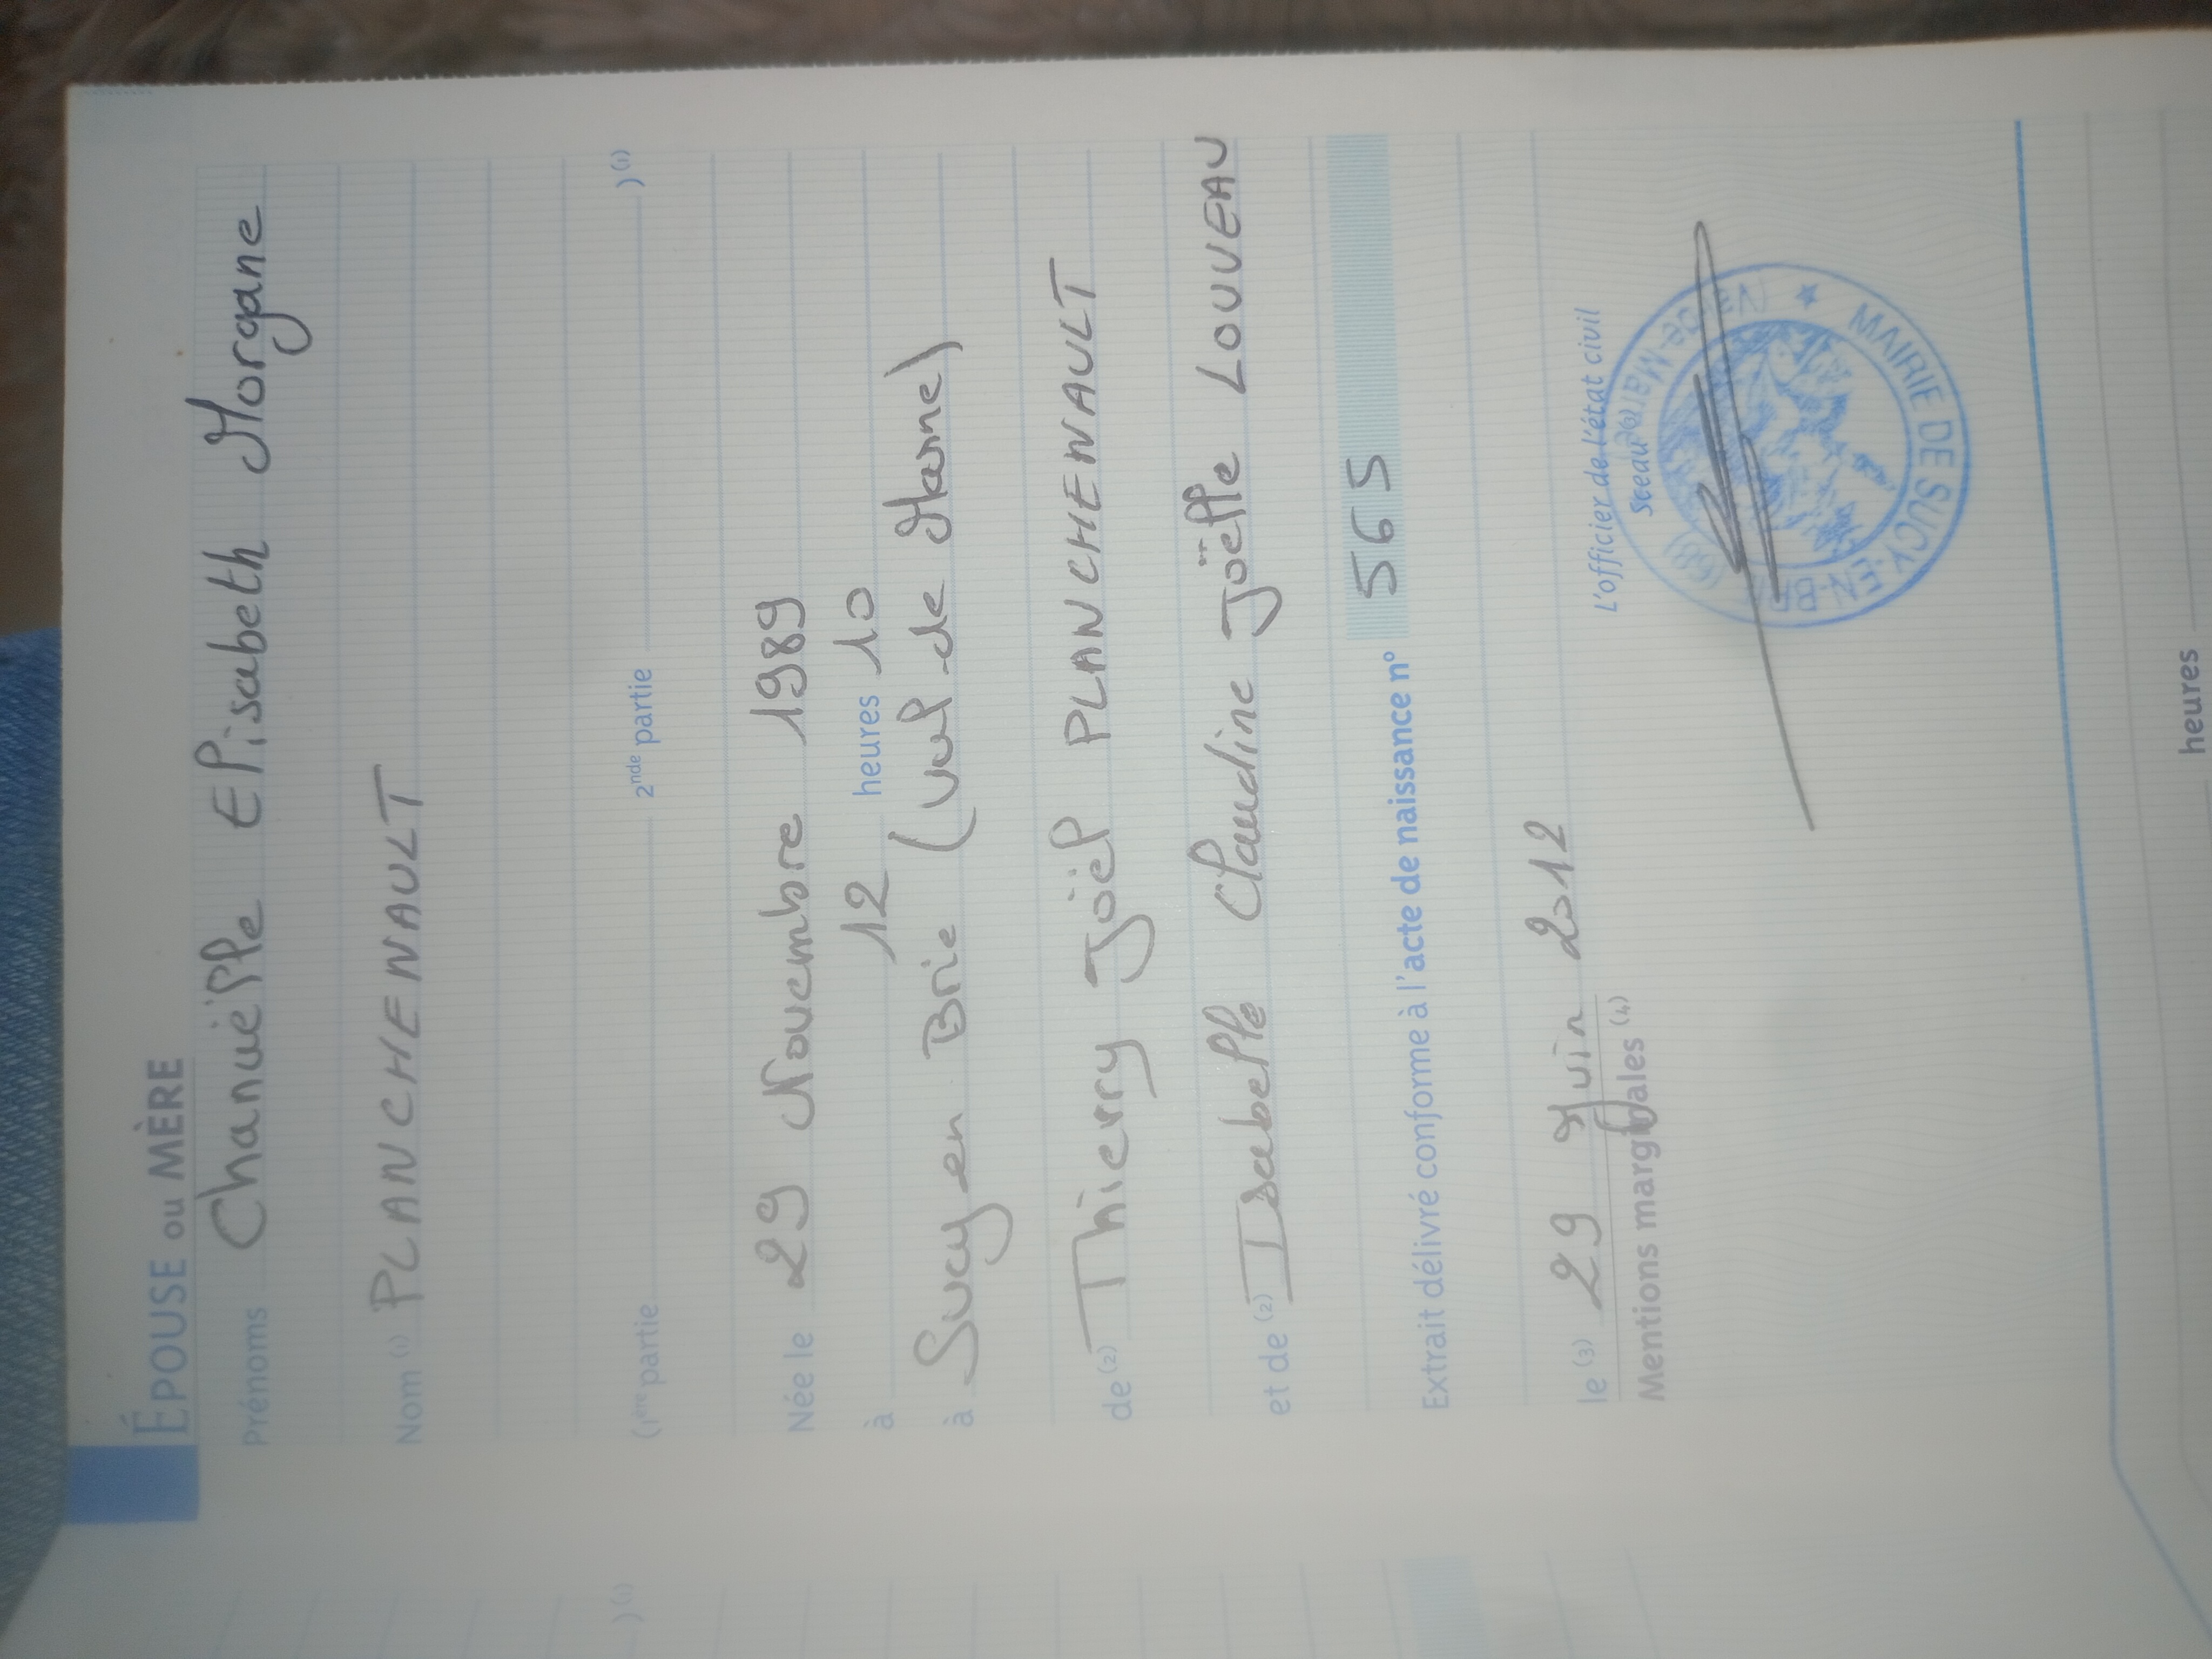 ÉPOUSE ou MÈRE
Prénoms Chanuëlle Elisabeth Morgane
Nom (1) PLANCHENAULT
(1ère partie 2nde partie )(1)
Née le 29 Novembre 1989
à 12 heures 10
à Sucy en Brie (Val-de Marne)
de (2) Thierry Joël PLANCHENAULT
et de (2) Isabelle Claudine Joëlle LOUVEAU
Extrait délivré conforme à l'acte de naissance n° 565
L'officier de l'état civil
Sceau
le (3) 29 Juin 2012
Mentions marginales (4)
MAIRIE DE SUCY-EN-BRIE ★ Val-de-Marne
heures
)(1)